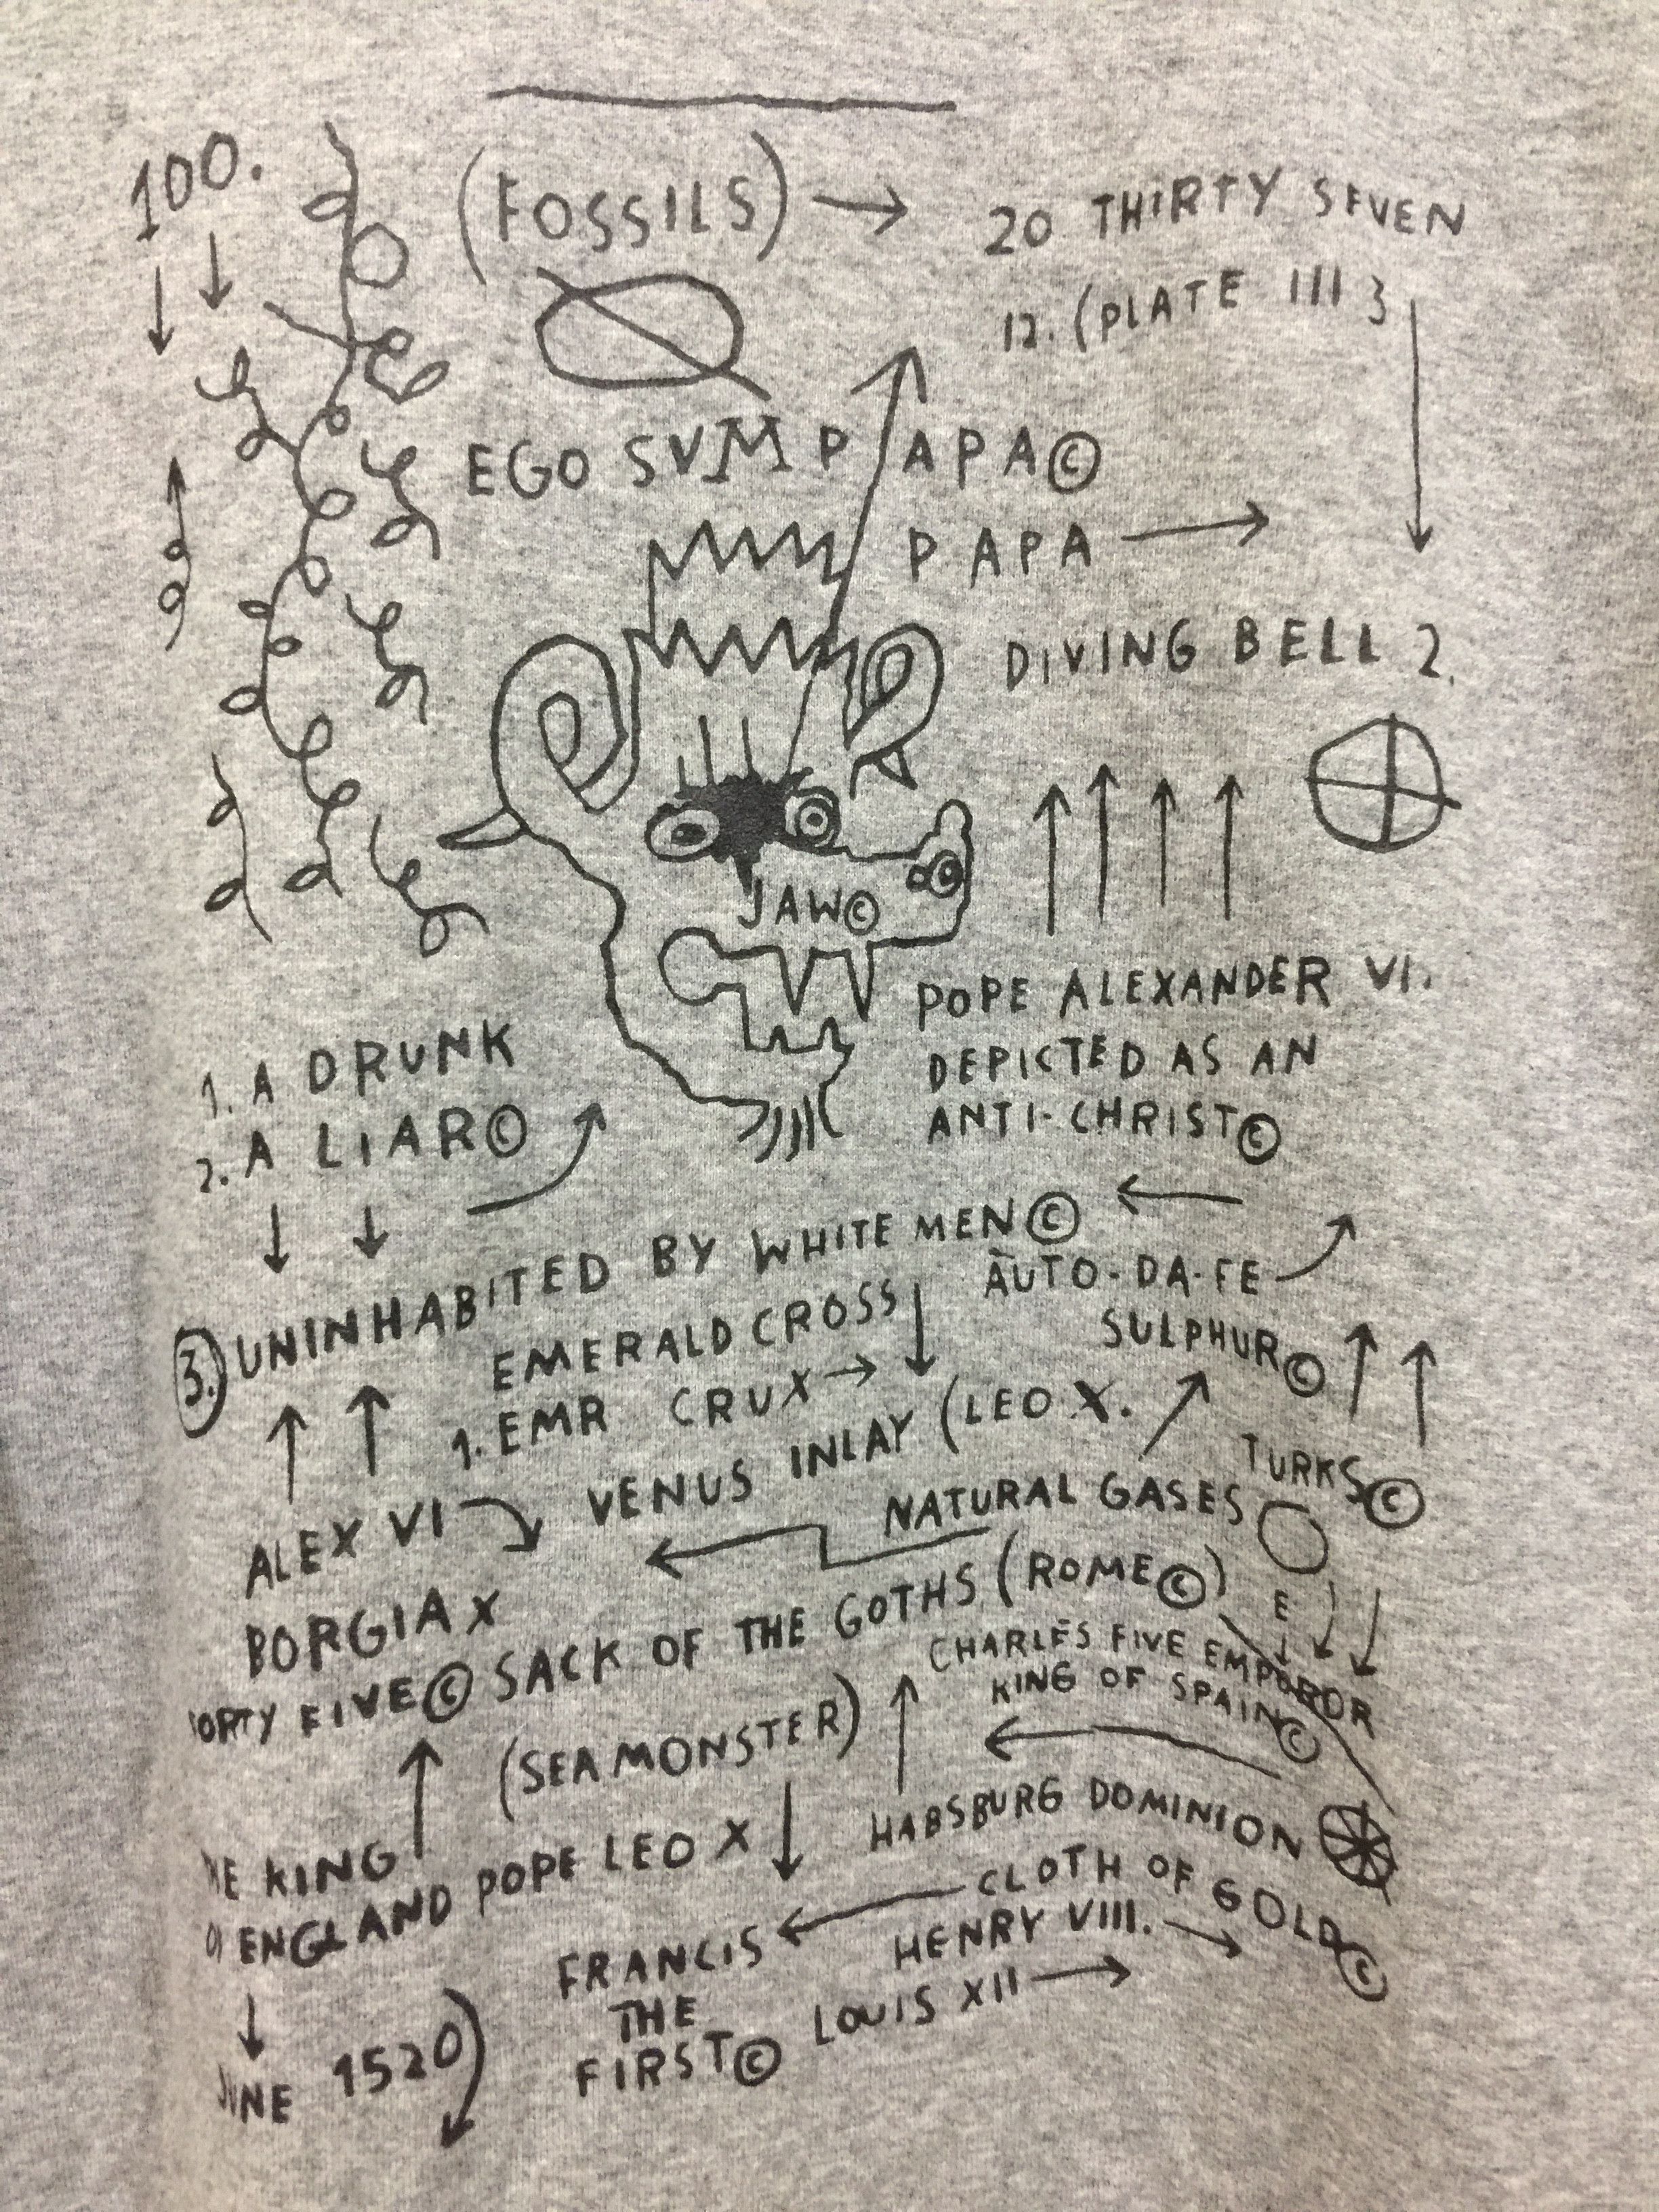 100.
(FOSSILS)
20 THIRTY SEVEN
12. (PLATE III }
EGO SVM PAPA©
PAPA
DIVING BELL 2.
JAW©
POPE ALEXANDER VI.
DEPICTED AS AN
ANTI-CHRIST©
1. A DRUNK
2. A LIAR©
3. UNINHABITED BY WHITE MEN©
AUTO-DA-FE
EMERALD CROSS
SULPHUR©
1. EMR CRUX
VENUS INLAY (LEO X.
TURKS©
NATURAL GASES
ALEX VI
BORGIA X
ORTY FIVE© SACK OF THE GOTHS (ROME©)
E
CHARLES FIVE EMPEROR
KING OF SPAIN©
(SEA MONSTER)
HABSBURG DOMINION
HE KING
OF ENGLAND POPE LEO X
CLOTH OF GOLD©
FRANCIS
THE
FIRST©
HENRY VIII.
LOUIS XII
JUNE 1520)